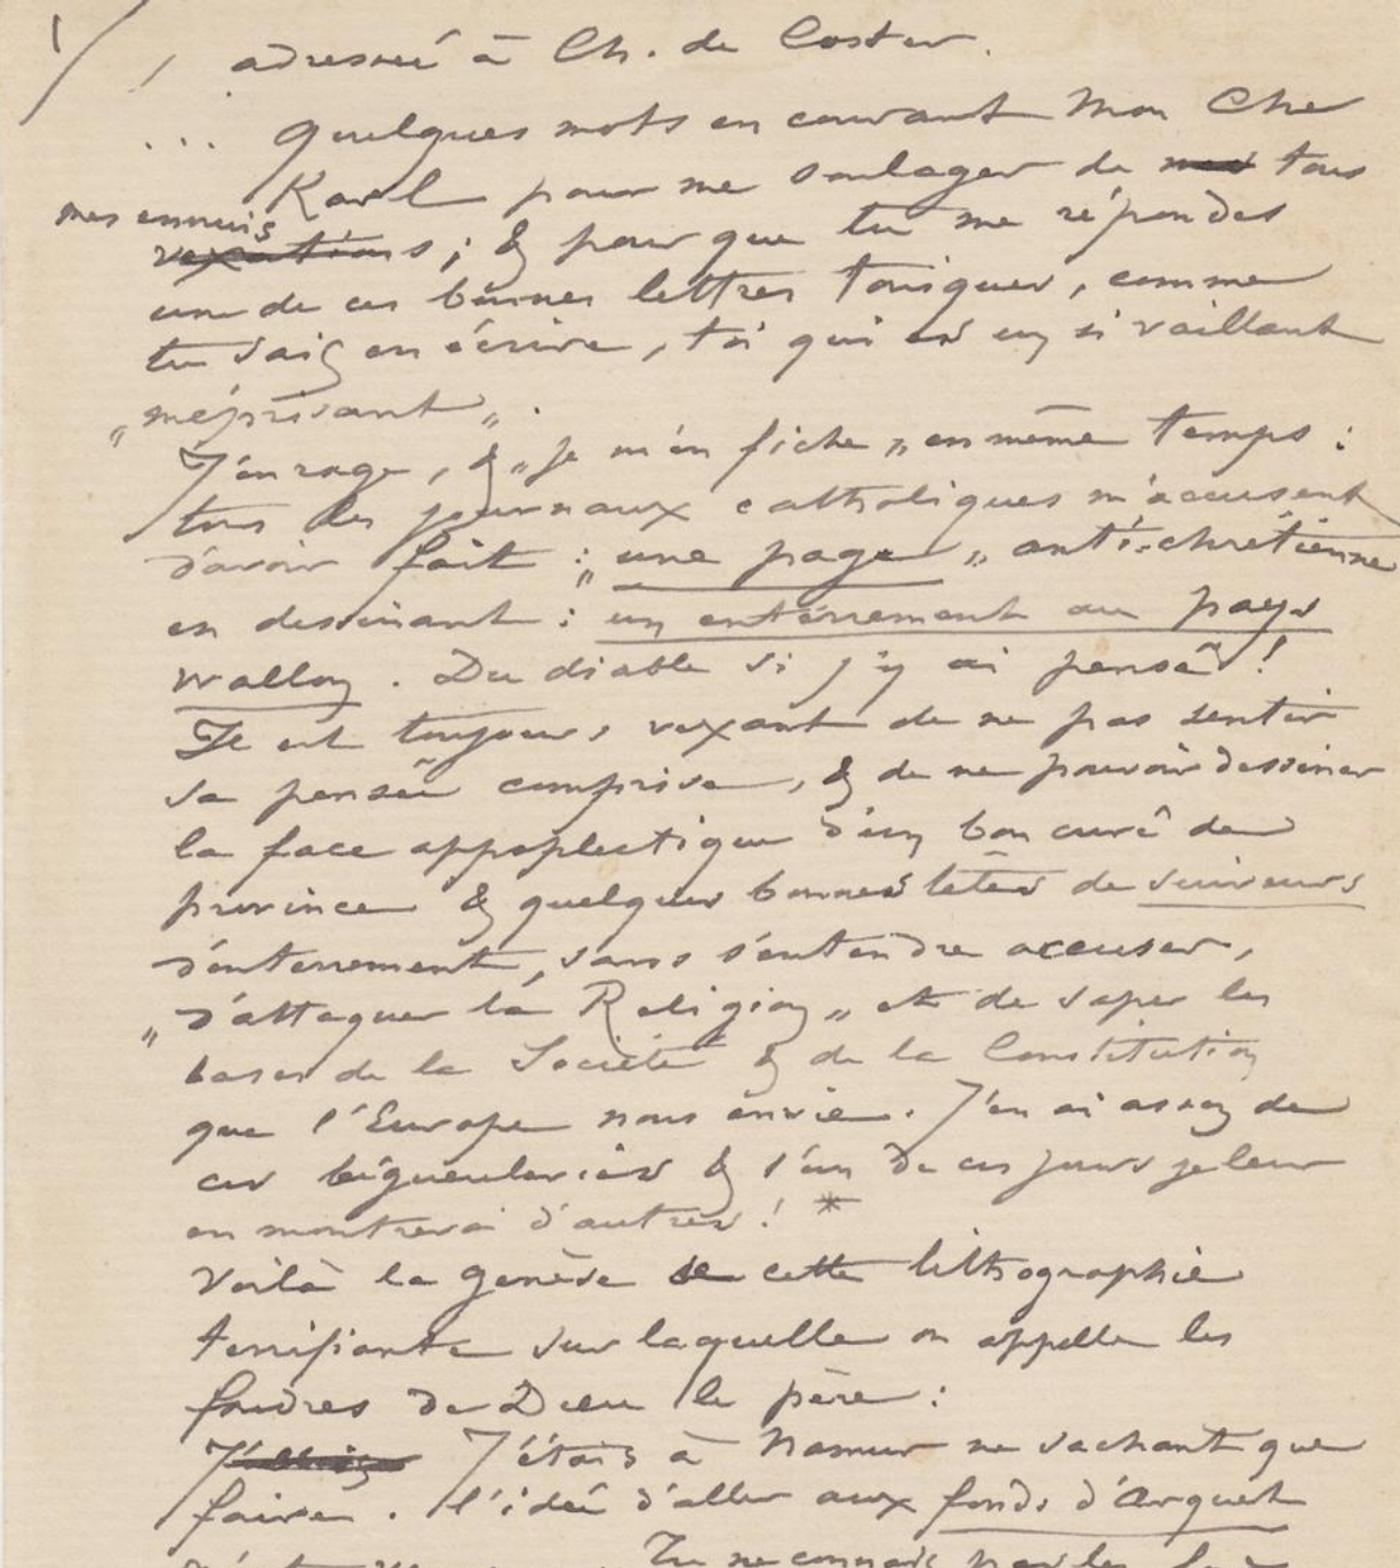 1/ / adressée à Ch. de Coster.
... Quelques mots en courant Mon Cher
Karl pour me soulager de mes tous
mes ennuis
vexations ; & pour que tu me répondes
une de ces bonnes lettres toniques, comme
tu sais en écrire, toi qui es un si vaillant
„méprisant„.
J'enrage, & „Je m'en fiche„ en même temps :
tous les journaux catholiques m'accusent
d'avoir fait : „une page„ anti-chrétienne
en dessinant : un enterrement au pays
wallon. Du diable si j'y ai pensé !
Il est toujours vexant de ne pas sentir
sa pensée comprise, & de ne pouvoir dessiner
la face appoplectique d'un bon curé de
province & quelques bonnes têtes de suiveurs
d'enterrement, sans s'entendre accuser,
„d'attaquer la Religion„ et de saper les
bases de la Société & de la Constitution
que l'Europe nous envie. J'en ai assez de
ces bégueuleries & l'un de ces jours je leur
en montrerai d'autres ! *
Voilà la genèse de cette lithographie
terrifiante sur laquelle on appelle les
foudres de Dieu le père :
J'étais à Namur ne sachant que
faire. l'idée d'aller aux fonds d'Arquet
Tu ne connais pas les